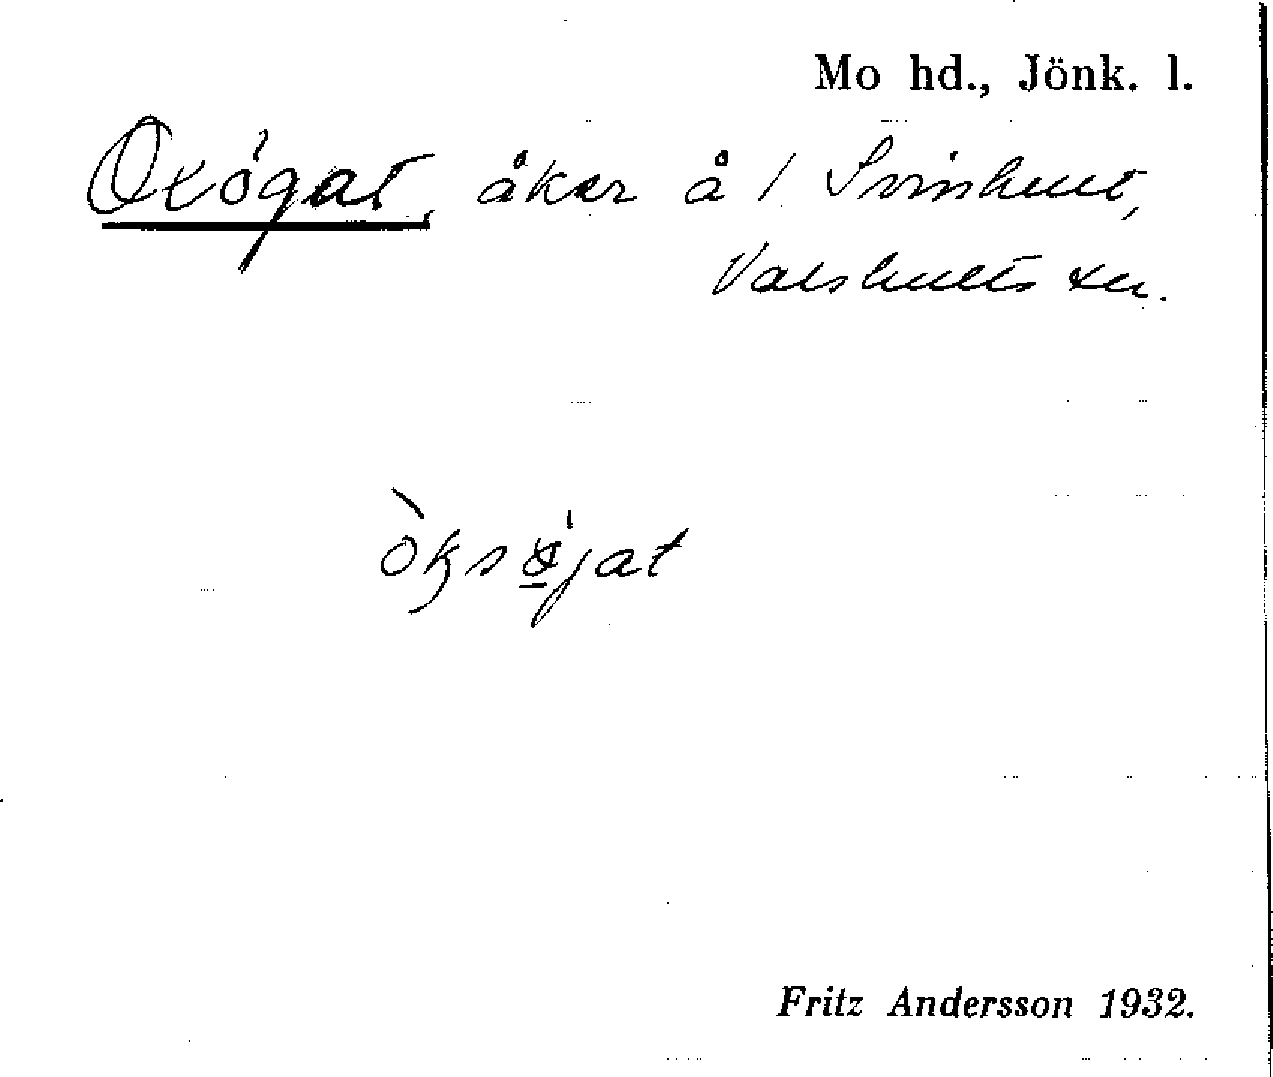 Mo hd., Jönk. l.
Oxögat, åker å / Svinhult,
Valshults sn.
òksöjat
Fritz Andersson 1932.